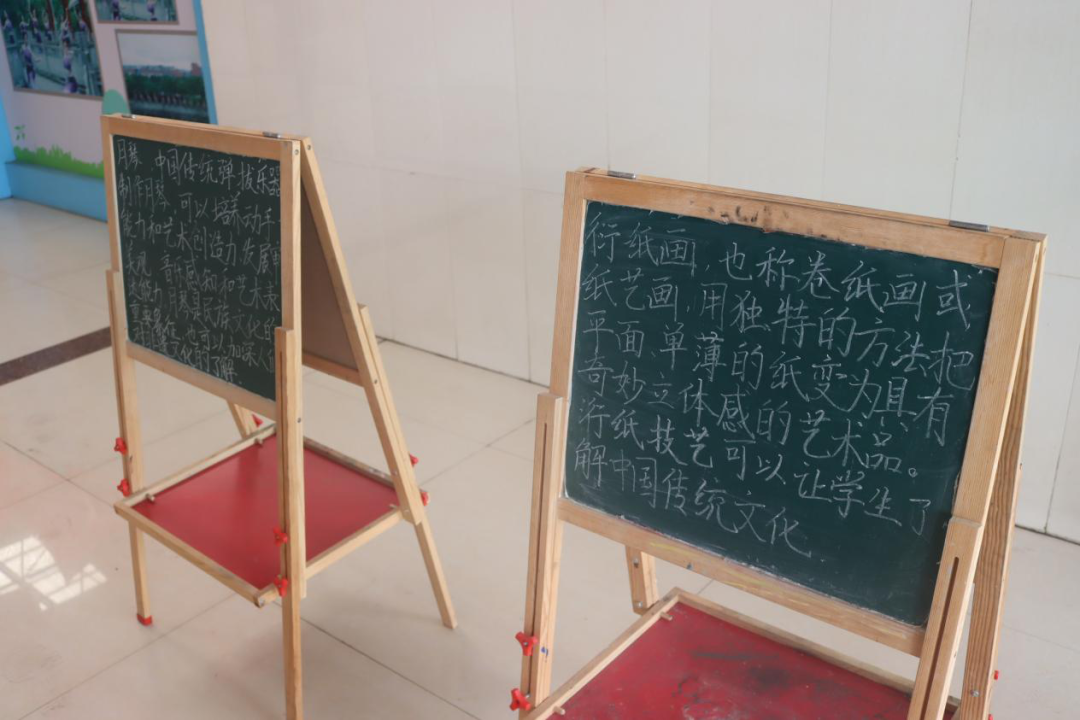 月琴，中国传统弹拔乐器
制作月琴，可以培养动手
能力和艺术创造力，发展审
美观、音乐感知和艺术表
能力
也可以加深
文化的了解.
衍纸画，也称卷纸画或
纸艺画，用独特的方法把
平面、单薄的纸变为具有
奇妙立体感的艺术品。
衍纸技艺可以让学生了
解中国传统文化